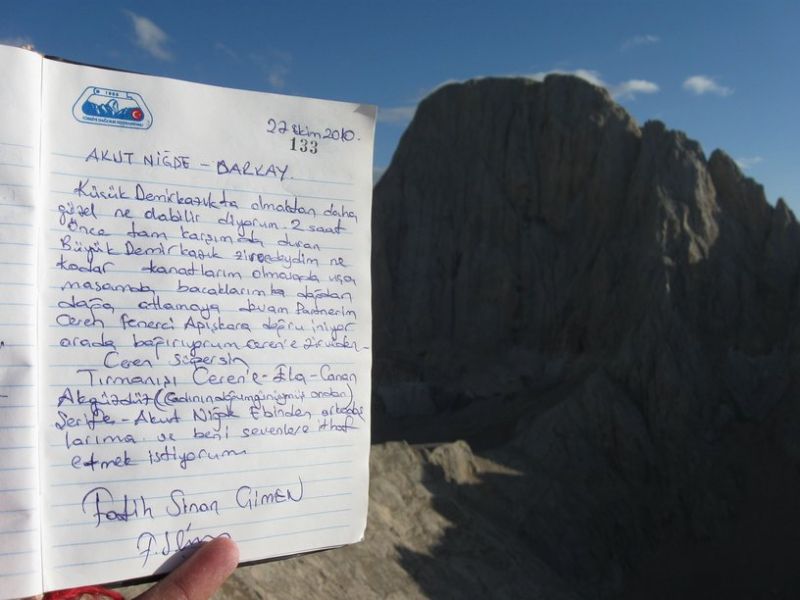 1966
22 Ekim 2010.
133
AKUT NİĞDE - BARKAY.
Küçük Demirkazıkta olmaktan daha
güzel ne olabilir diyorum. 2 saat
Önce tam karşımda duran
Büyük Demirkazık zirvedeydim ne
kadar kanatlarım olmasada uça
masamda bacaklarımla dağdan
dağa atlamaya Devam Partnerim
Ceren Fenerci Apışkara doğru iniyor
arada bağırıyorum Ceren'e zirveden-
Ceren süpersin
Tırmanışı Ceren'e - Ela - Canan
Akgündüz
Şerife - Akut Niğde Ekibinden arkadaş
larıma ve beni sevenlere ithaf
etmek istiyorum
Fatih Sinan ÇİMEN